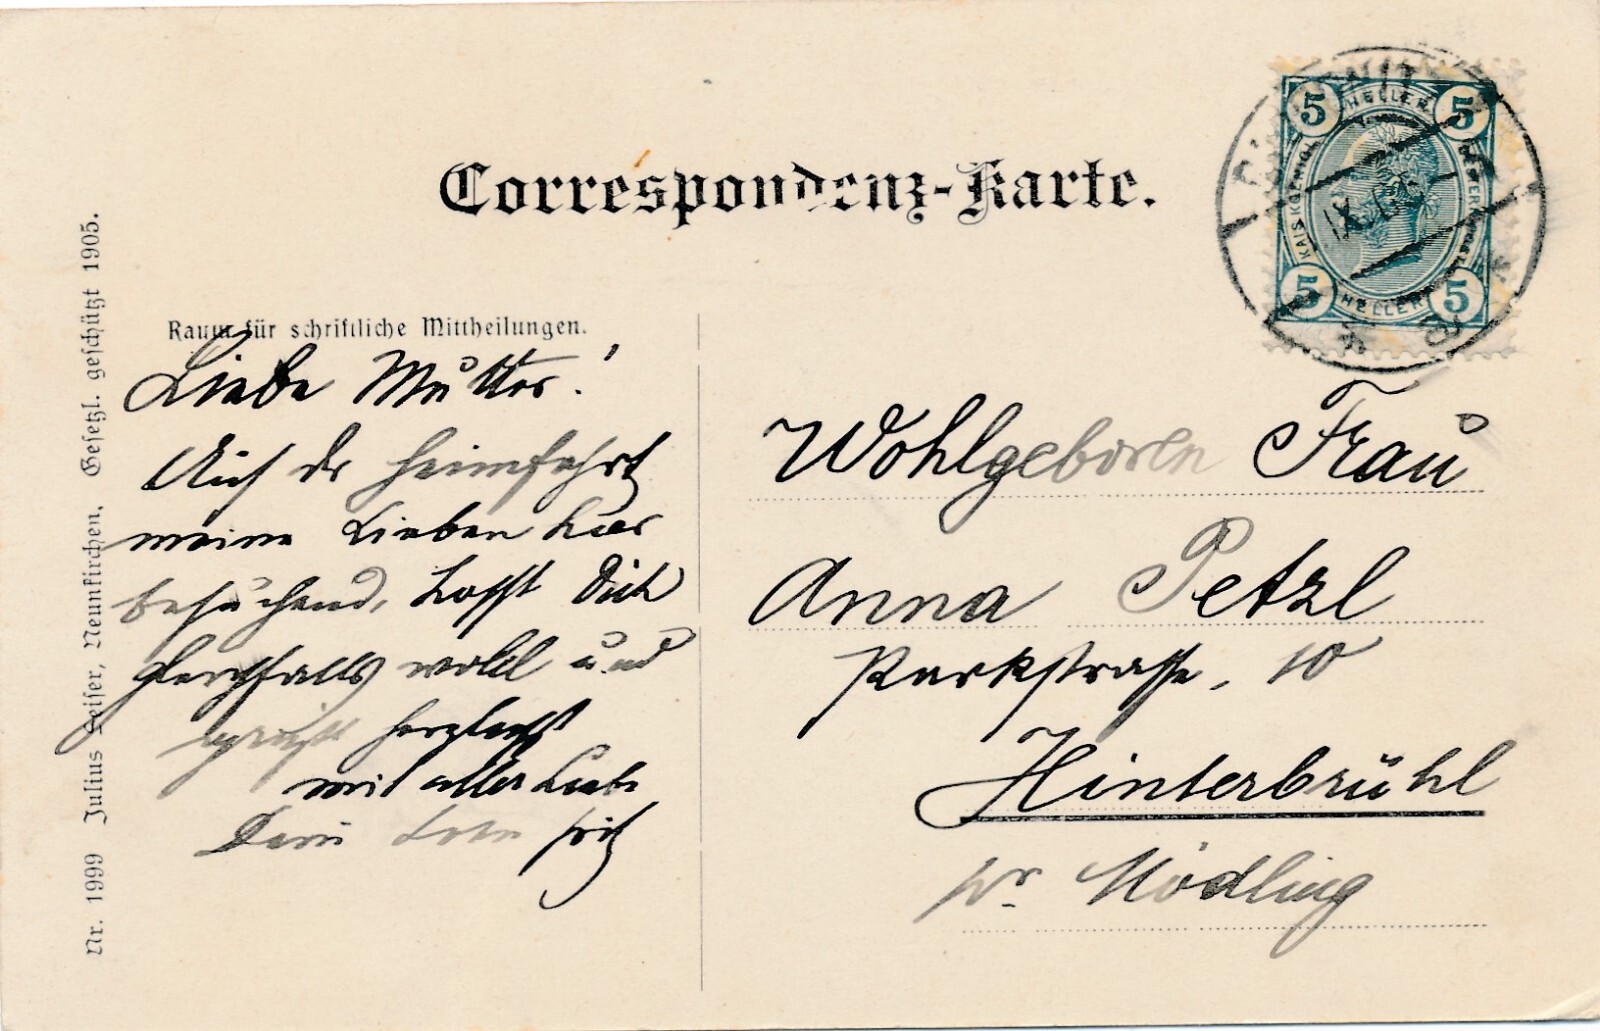 Correspondenz-Karte.
5 HELLER 5
5 HELLER 5
Raum für schriftliche Mittheilungen.
Liebe Mutter!
Auf der Heimfahrt
meine Lieben hier
besuchend, hofft Dich
gleichfalls wohl und
grüßt herzlichst
mit aller Liebe
Dein Fritz
Wohlgeboren Frau
Anna Petzl
Parkstrasse, 10
Hinterbrühl
pr. Mödling
Nr. 1999 Julius Seiser, Neunkirchen. Gesetzl. geschützt 1905.